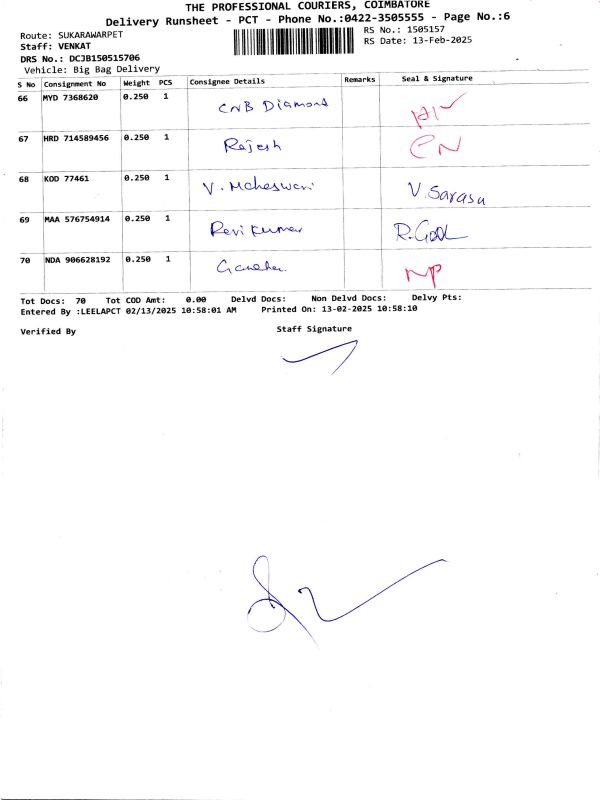 THE PROFESSIONAL COURIERS, COIMBATORE
Delivery Runsheet - PCT - Phone No.:0422-3505555 - Page No.:6
Route: SUKARAWARPET
RS No.: 1505157
Staff: VENKAT
RS Date: 13-Feb-2025
DRS No.: DCJB150515706
Vehicle: Big Bag Delivery
S No Consignment No Weight PCS Consignee Details Remarks Seal & Signature
66 MYD 7368620 0.250 1 CNB Diamond
67 HRD 714589456 0.250 1 Rajesh CN
68 KOD 77461 0.250 1 V. Maheswari V. Sarasu
69 MAA 576754914 0.250 1 Ravi kumar
70 NDA 906628192 0.250 1 NP
Tot Docs: 70 Tot COD Amt: 0.00 Delvd Docs: Non Delvd Docs: Delvy Pts:
Entered By :LEELAPCT 02/13/2025 10:58:01 AM Printed On: 13-02-2025 10:58:10
Verified By Staff Signature